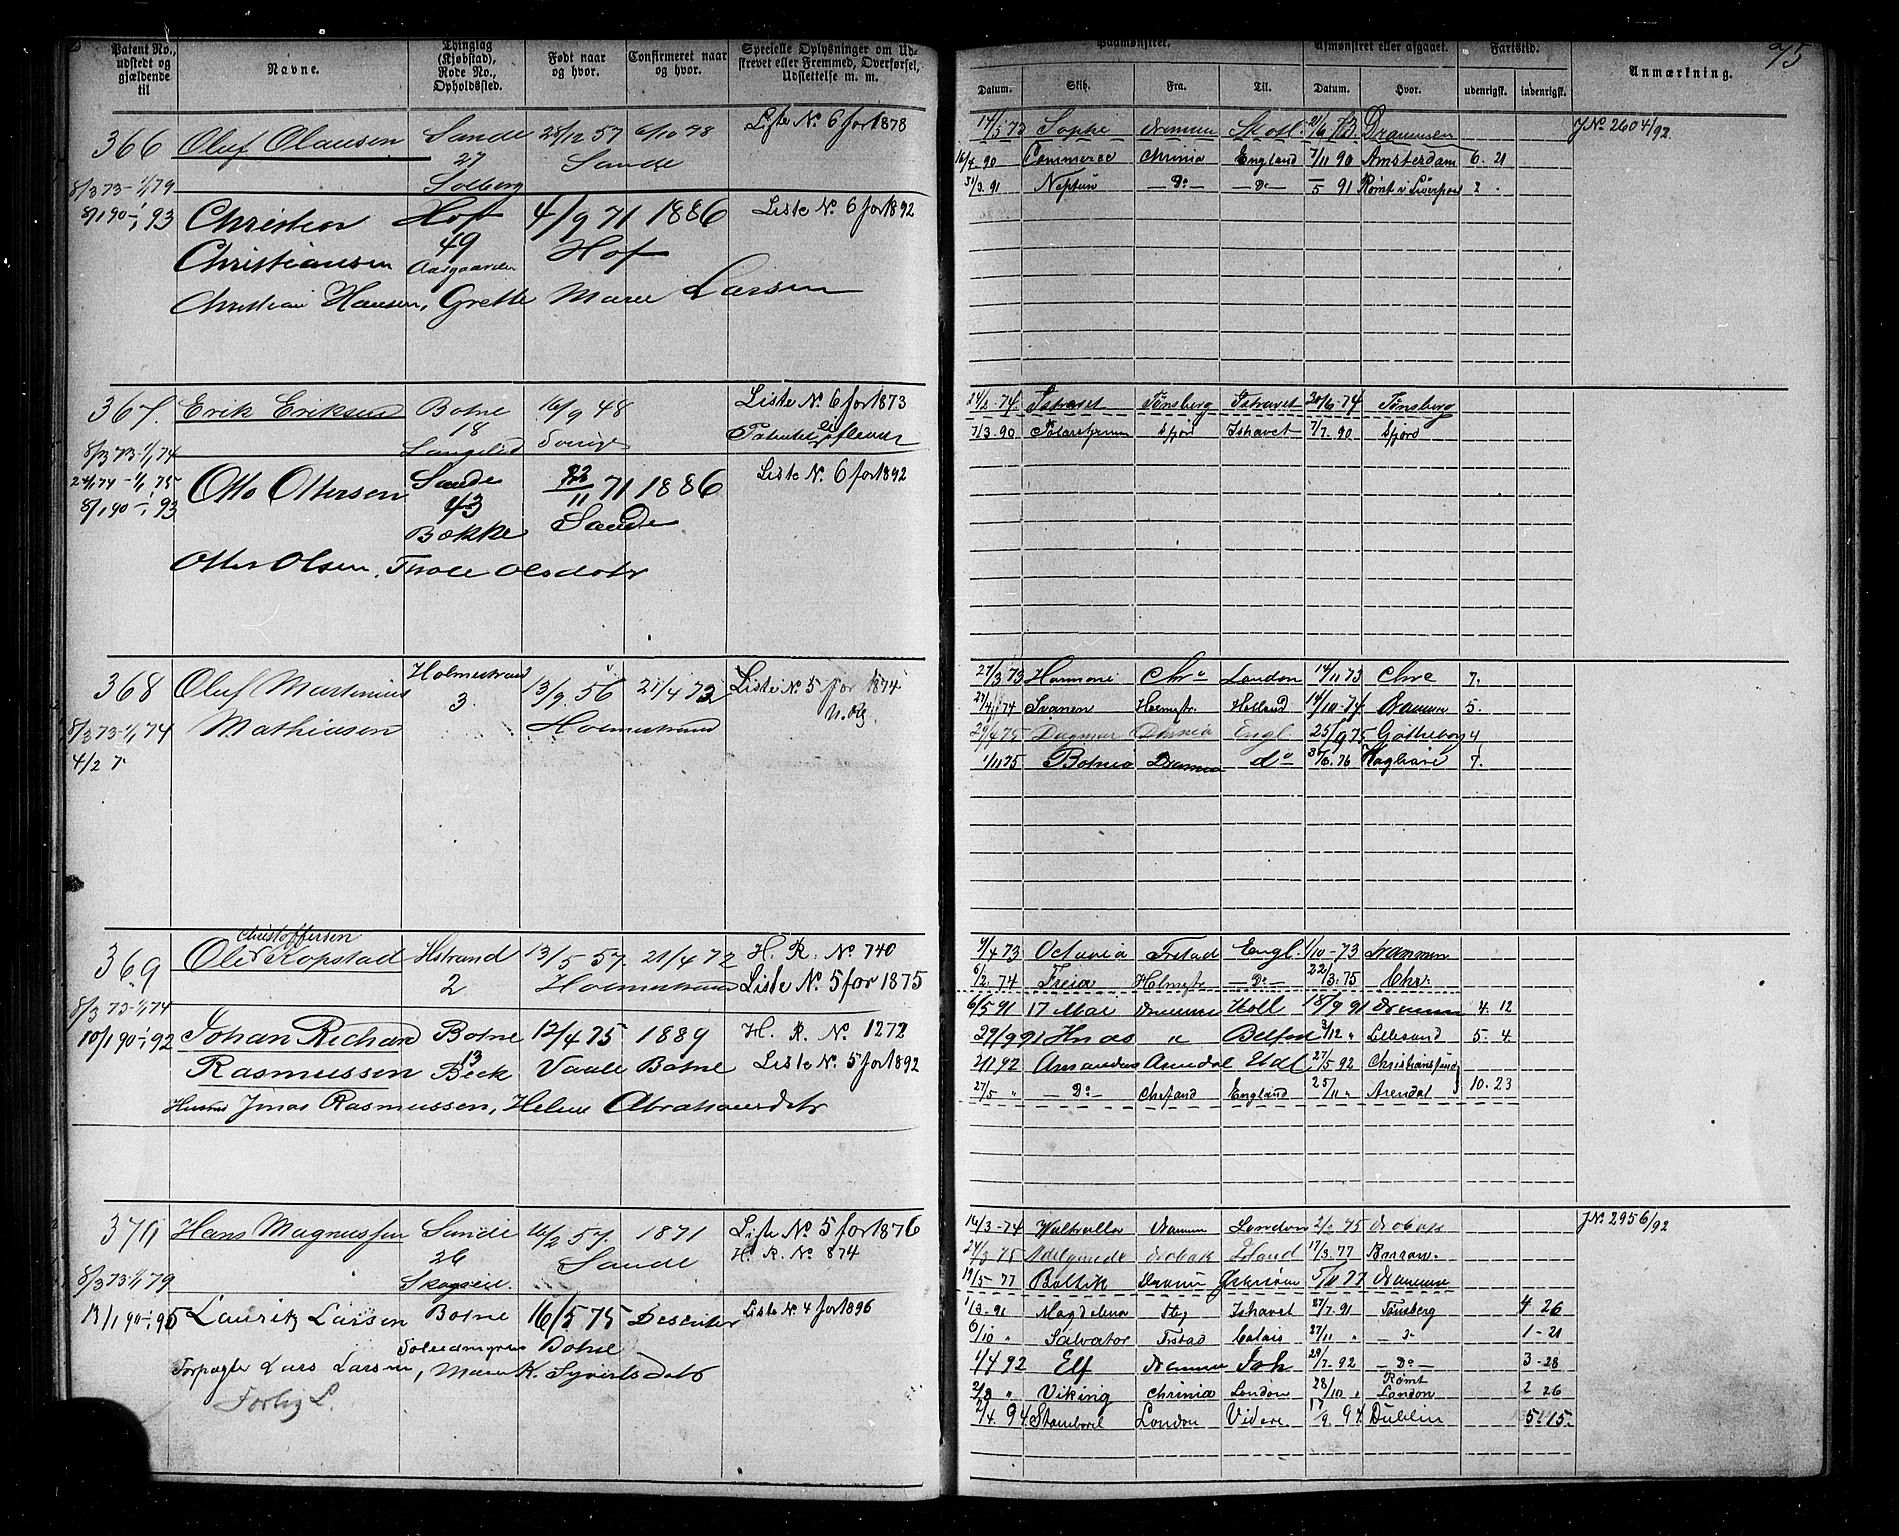 95
Patent No., udstedt og gjældende til
Navne.
Thinglag (Kjøbstad), Rode No., Opholdssted.
Født naar og hvor.
Confirmeret naar og hvor.
Specielle Oplysninger om Udskrevet eller Fremmed, Overførsel, Udslettelse m. m.
Paamønstret.
Afmønstret eller afgaaet.
Fartstid.
Anmærkning.
Datum. Skib. Fra. Til. Datum. Hvor. udenrigsk. indenrigsk.
366 Oluf Olausen Sande 28/12 57 6/10 78 Liste No. 6 for 1878
27 Sande
8/3 73 - 1/1 79 Solberg
8/1 90 - 1/1 93 Christian Hof 4/9 71 1886 Liste No. 6 for 1892
Christiansen 49 Hof
Aasgaarden
Christian Hansen, Grethe Marie Larsen
14/5 73 Sophe Skotl. 21/6 73 Drammen J No 2604/92
16/4 90 Commerce Chrinia England 7/11 90 Amsterdam 6. 21
31/3. 91 Neptun — Do — — Do — /5 91 Rømt i Liverpool 2 -
367. Erik Eriksen Botne 16/9 48 Liste No. 6 for 1873
18 Sverige
8/3 73 - 1/1 74
24/1 74 - 1/1 75 Otto Ottersen Sande 22/11 71 1886 Liste No. 6 for 1892
8/1 90 - 1/1 93 43 Sande
Bække
Otter Olsen, Thale Olsdatr
24/2 - 74. Ishavet Tønsberg Ishavet 20/6 - 74 Tønsberg
7/3. 90 Polarstjernen Sfjord Ishavet 7/7. 90 Sfjord
368 Oluf Martinius Holmestrand 13/9. 56 21/4 72 Liste No. 5 for 1874
Mathiesen 3. Holmestrand
8/3 73 - 1/1 74
4/2 7
27/3 73 Harmoni Chra London 14/11 73 Chra 7.
27/4 74 Svanen Holmstr. Holland 14/10 - 74 Drammen 5.
29/4 75 Dagmar Chrinia Engl 25/9 75 Gøtheborg 4
1/11 75 Botnia Drammen do 30/6. 76 Kragerø 7.
369 Christoffersen
Ole Kopstad Hstrand 13/5 57. 21/4 72 H. R. No 740
2 Holmestrand Liste No. 5 for 1875
8/3 73 - 1/1 74
10/1 90 - 1/1 92 Johan Richard Botne 12/4 75 1889 H. R. No. 1272
Rasmussen 13 Beck Vaale Botne Liste No. 5 for 1892
Husmd Jonas Rasmussen, Helene Abrahamsdatr
9/4 73 Octavia Frstad Engl. 1/10 - 73 Drammen
6/2. 74 Freia Holmstr — Do — 22/3. 75 Chr.
6/5 91 17 Mai Drammen Holl 18/9 91 Drammen 4. 12
29/9 91 Hnos " Belfast 3/12 " Lillesand 5. 4
2/1 92 Amandus Arendal Udl 27/5 92 Christianssund
27/5 " — Do — England 25/11 " Arendal 10. 23
370 Hans Magnussen Sande 16/2 57. 1871 Liste No. 5 for 1876
26 Sande H. R. No 874
8/3 73 1/1 79
13/1 90 - 1/1 95 Lauritz Larsen Botne 16/5 75 Desenter Liste No. 4 for 1896
Botne
Forpagter Lars Larsen, Maren K. Syvertsdatr
Forlig L.
16/3 - 74 Walhalla Drammen London 2/2 75 Drobak J No. 2956/92
24/3 75 Adelgunde Drobak Irland 17/3. 77
19/5 - 77 Baltik Drammen Østersøen 5/10 77 Drammen
1/3 - 91 Magdalena Ishavet 27/7. 91 Tønsberg 4 26
6/10 " Salvator Frstad Calais 27/11 " — " — 1 - 21
1/4 92 Elf Drammen 29/7. 92 — Do — 3 - 28
2/8 " Viking Chrinia London 28/10 " Rømt London 2 26
2/4. 94 Stamboul London Videre 17/9. 94. Dublin 5. 15.